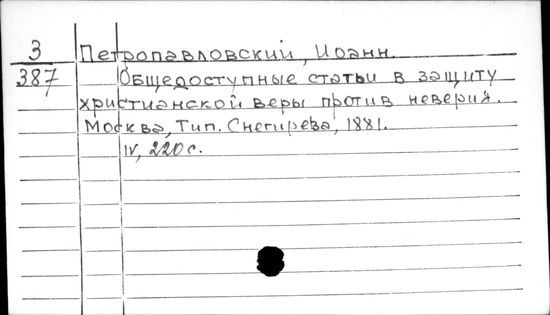 3 Петропавловский, Иоанн.
387 Общедоступные статьи в защиту
христианской веры против неверия.
Москва, Тип. Снегирева, 1881.
IV, 220 с.